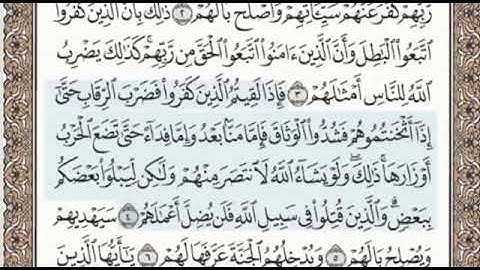 رَّبِّهِمْ كَفَّرَ عَنْهُمْ سَيِّـَٔاتِهِمْ وَأَصْلَحَ بَالَهُمْ ٢ ذَٰلِكَ بِأَنَّ ٱلَّذِينَ كَفَرُوا۟
ٱتَّبَعُوا۟ ٱلْبَٰطِلَ وَأَنَّ ٱلَّذِينَ ءَامَنُوا۟ ٱتَّبَعُوا۟ ٱلْحَقَّ مِن رَّبِّهِمْ ۚ كَذَٰلِكَ يَضْرِبُ
ٱللَّهُ لِلنَّاسِ أَمْثَٰلَهُمْ ٣ فَإِذَا لَقِيتُمُ ٱلَّذِينَ كَفَرُوا۟ فَضَرْبَ ٱلرِّقَابِ حَتَّىٰٓ
إِذَآ أَثْخَنتُمُوهُمْ فَشُدُّوا۟ ٱلْوَثَاقَ فَإِمَّا مَنًّۢا بَعْدُ وَإِمَّا فِدَآءً حَتَّىٰ تَضَعَ ٱلْحَرْبُ
أَوْزَارَهَا ۚ ذَٰلِكَ ۖ وَلَوْ يَشَآءُ ٱللَّهُ لَٱنتَصَرَ مِنْهُمْ وَلَٰكِن لِّيَبْلُوَا۟ بَعْضَكُم
بِبَعْضٍ ۗ وَٱلَّذِينَ قُتِلُوا۟ فِى سَبِيلِ ٱللَّهِ فَلَن يُضِلَّ أَعْمَٰلَهُمْ ٤ سَيَهْدِيهِمْ
وَيُصْلِحُ بَالَهُمْ ٥ وَيُدْخِلُهُمُ ٱلْجَنَّةَ عَرَّفَهَا لَهُمْ ٦ يَٰٓأَيُّهَا ٱلَّذِينَ